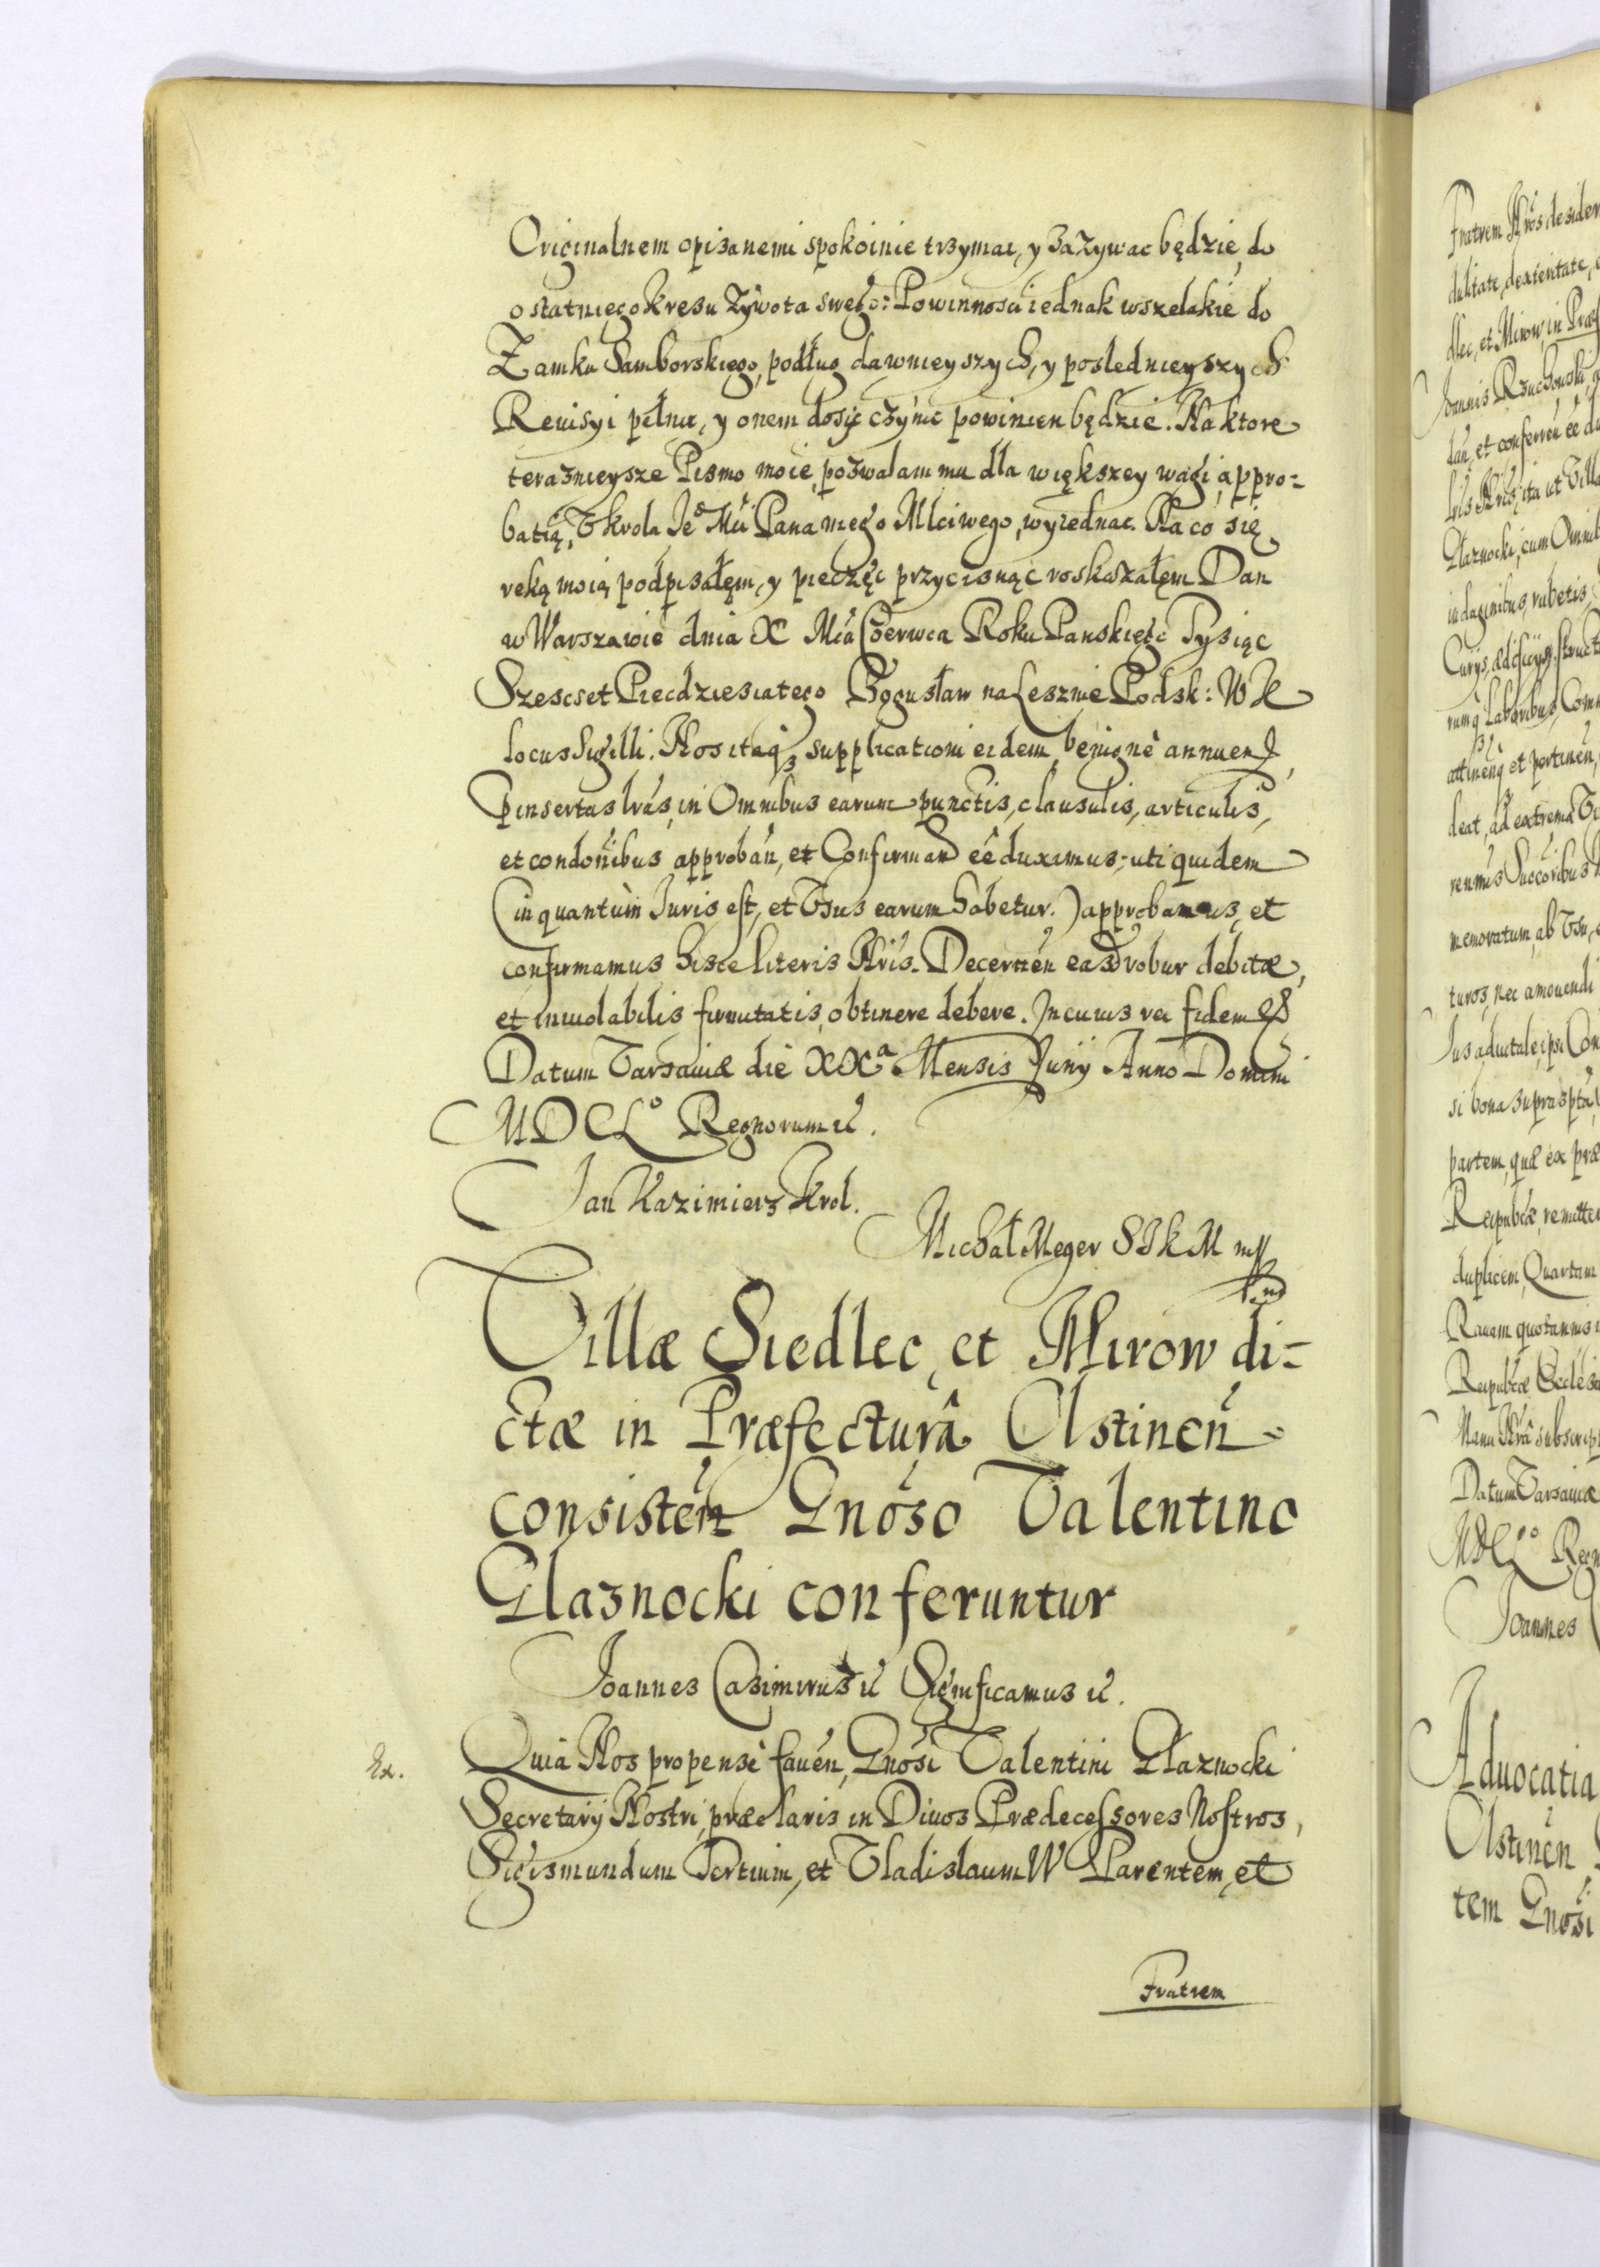 Originalnem opisanemi spokoinie trzymac, y zazywac będzie, do
ostatniego kresu Zywota swego: Powinnosci iednak wszelakie do
Zamku Samborskiego, podług dawnieyszych, y poslednieyszych
Reuisyi pełnic, y onem dosyc czynic powinien będzie. Na ktore
teraznieysze Pismo moie, pozwalam mu dla większey wagi, appro-
batią, V krola Je° Mci Pana mego Mlciwego, wyiednac. Na co się
ręką moią podpisałęm, y pieczęc przycisnąc roskazałęm Dan
w Warszawie dnia X Mca Czerwca Roku Panskiego Tysiąc
Szescset Piecdziesiatego Bogusław na Lesznie Podsk: WK
Locus Sigilli. Nos itaq3 supplicationi eidem, benigne annuen
pinsertas lras, in Omnibus earum punctis, clausulis, articulis,
et condonibus approban, et Confirmand ee duximus, uti quidem
(in quantum Iuris est, et Vsus earum habetur.) approbamus, et
confirmamus hisce literis Nris. Decernen easd robur debitæ,
et inuiolabilis firmitatis, obtinere debere. In cuius rei fidem &
Datum Varsauiæ die XXa Mensis Junij Anno Domini
MDCL° Regnorum &c.
Jan Kazimierz Krol.
Michał Meger SJKM mp
Villæ Siedlec, et Mirow di-
ctæ in Præfectura Olstinen
consisten Gnoso Valentino
Glaznocki conferuntur
Joannes Casimirus &c Significamus &c.
Ex.
Quia Nos propense fauen, Gnosi Valentini Głaznocki
Secretarij Nostri, præclaris in Diuos Prædecessores Nostros,
Sigismundum Tertium, et Vladislaum IV Parentem, et
Fratrem
Fratrem Nros desider
dulitate, dexteritate,
dlec, et Mirow, in Præf
Joannis Rzuchowski,
dan, et conferen ee du
bis Nris, ita ut Villa
Głaznocki, cum Omnib
indaginibus, rubetis,
Curijs, ædificijsq3, struct
rumq3 Laboribus, Com
attinenq3 et pertinen,
deat, ad extrema
renmis Succoribus
memoratum, ab Vsu,
turos, nec amouendi
Jus aduitale, ipsi Con
si bona supraspta,
partem, quæ ex præ
Reipubcæ, remitte
duplicem, Quartam
Rauam quotannis
Reipubcæ Ecclesia
Manu Nra subscrip
Datum Varsauiæ
MDCL°° Regn
Joannes
Aduocatia
Olstinen
tem Gnosi